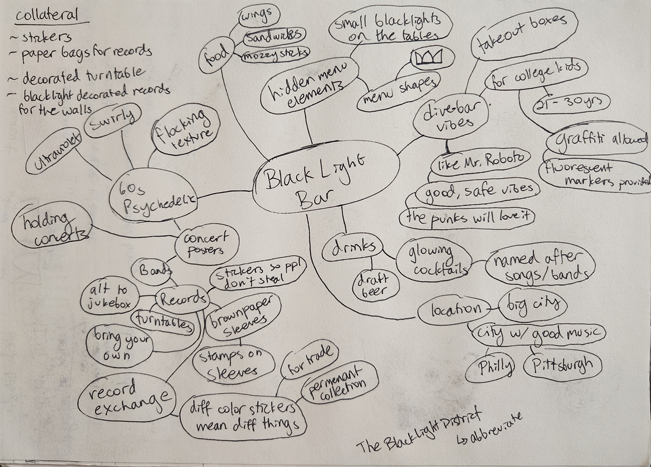 collateral
~ stickers
~ paper bags for records
~ decorated turntable
~ blacklight decorated records
for the walls
food
wings
sandwiches
mozzy sticks
hidden menu
elements
small blacklights
on the tables
menu shapes
dive bar
vibes
takeout boxes
for college kids
21-30yrs
graffiti allowed
fluorescent
markers provided
like Mr. Roboto
good, safe vibes
the punks will love it
Black Light
Bar
60s
Psychedelic
ultraviolet
swirly
flocking
texture
holding
concerts
concert
posters
Bands
Records
alt to
jukebox
turntables
bring your
own
stickers so ppl
don't steal
brown paper
sleeves
stamps on
sleeves
record
exchange
diff color stickers
mean diff things
for trade
permenant
collection
drinks
draft
beer
glowing
cocktails
named after
songs/bands
location
big city
city w/ good music
Philly
Pittsburgh
The Black Light District
↳ abbreviate